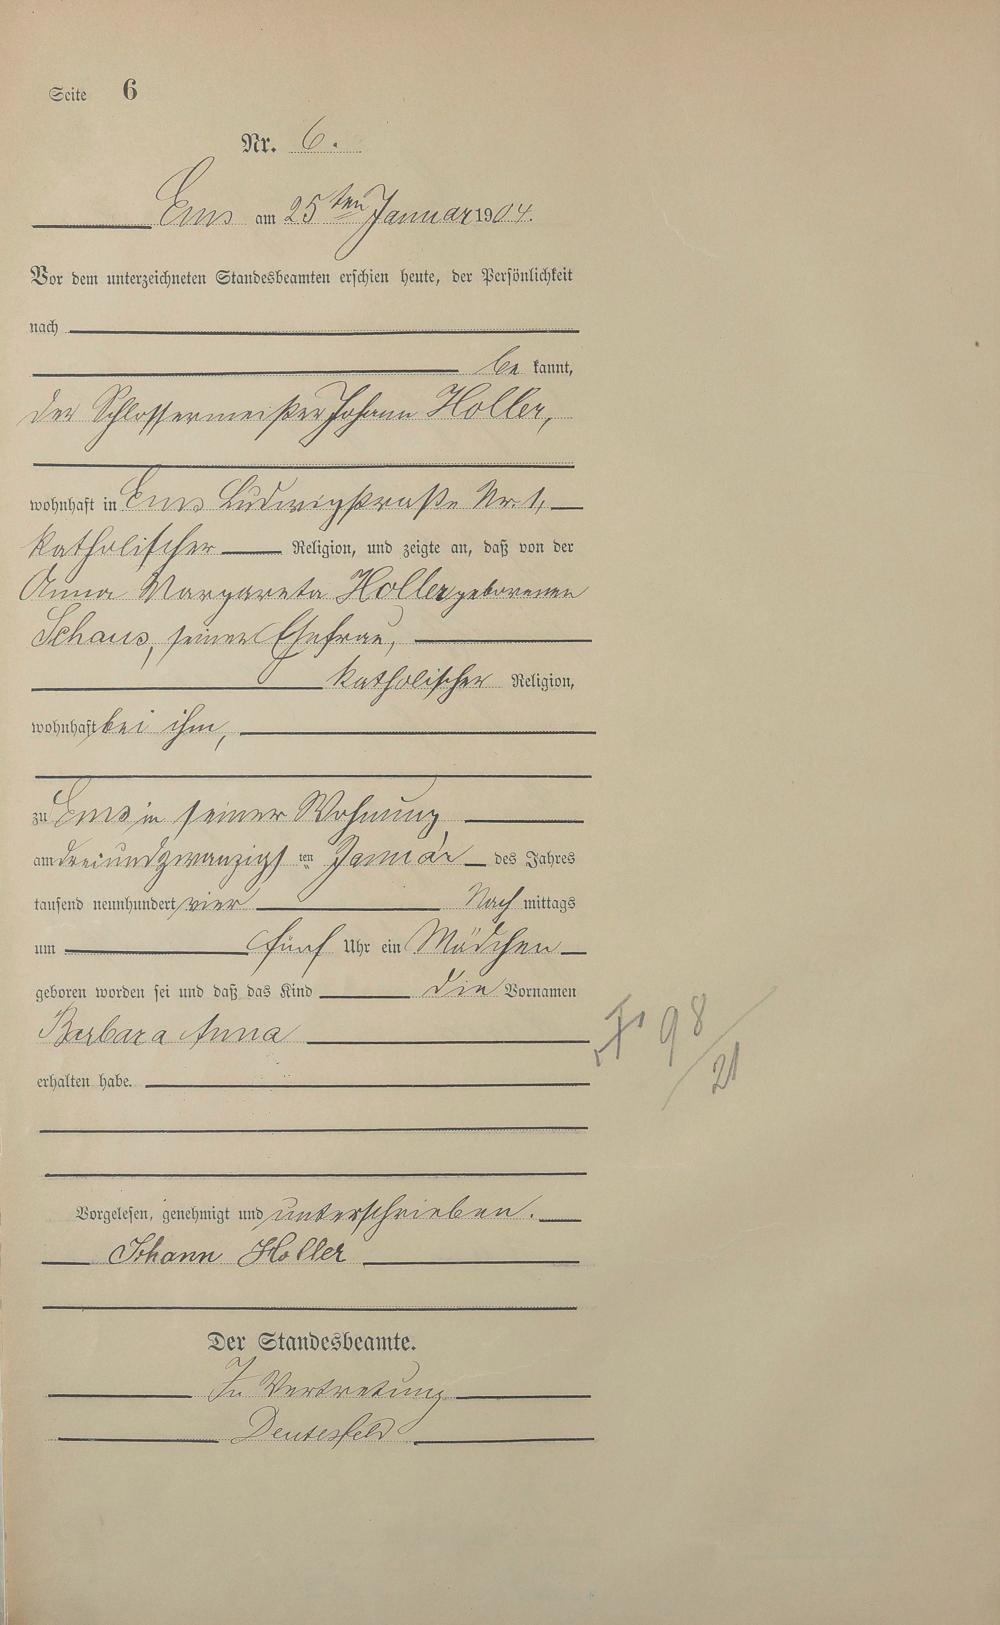 Seite 6
Nr. 6.
Ems am 25ten Januar 1904.
Vor dem unterzeichneten Standesbeamten erschien heute, der Persönlichkeit
nach
be kannt,
der Schlossermeister Johann Holler,
wohnhaft in Ems Ludwigstraße Nr. 1,
katholischer Religion, und zeigte an, daß von der
Anna Margareta Holler geborenen
Schaus, seiner Ehefrau,
katholischer Religion,
wohnhaft bei ihm,
zu Ems in seiner Wohnung
am dreiundzwanzigs ten Januar des Jahres
tausend neunhundert vier Nach mittags
um fünf Uhr ein Mädchen
geboren worden sei und daß das Kind die Vornamen
Barbara Anna
98/21
erhalten habe.
Vorgelesen, genehmigt und unterschrieben.
Johann Holler
Der Standesbeamte.
In Vertretung